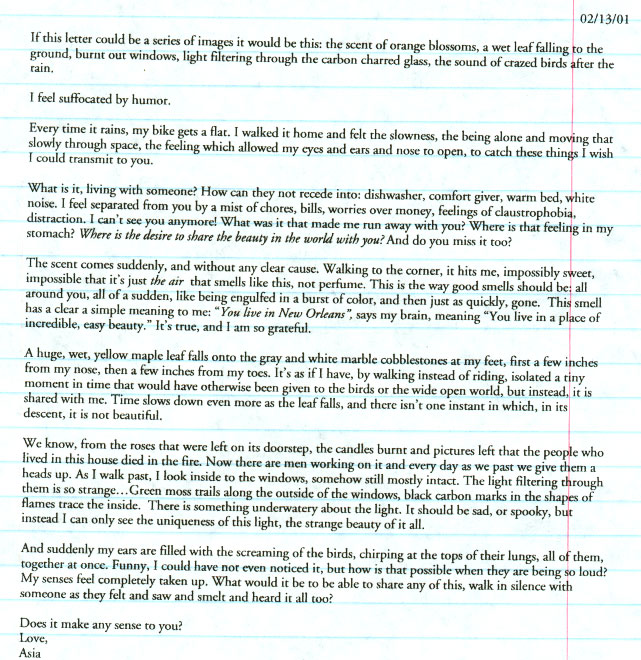 02/13/01
If this letter could be a series of images it would be this: the scent of orange blossoms, a wet leaf falling to the
ground, burnt out windows, light filtering through the carbon charred glass, the sound of crazed birds after the
rain.
I feel suffocated by humor.
Every time it rains, my bike gets a flat. I walked it home and felt the slowness, the being alone and moving that
slowly through space, the feeling which allowed my eyes and ears and nose to open, to catch these things I wish
I could transmit to you.
What is it, living with someone? How can they not recede into: dishwasher, comfort giver, warm bed, white
noise. I feel separated from you by a mist of chores, bills, worries over money, feelings of claustrophobia,
distraction. I can't see you anymore! What was it that made me run away with you? Where is that feeling in my
stomach? Where is the desire to share the beauty in the world with you? And do you miss it too?
The scent comes suddenly, and without any clear cause. Walking to the corner, it hits me, impossibly sweet,
impossible that it's just the air that smells like this, not perfume. This is the way good smells should be: all
around you, all of a sudden, like being engulfed in a burst of color, and then just as quickly, gone. This smell
has a clear a simple meaning to me: "You live in New Orleans", says my brain, meaning "You live in a place of
incredible, easy beauty." It's true, and I am so grateful.
A huge, wet, yellow maple leaf falls onto the gray and white marble cobblestones at my feet, first a few inches
from my nose, then a few inches from my toes. It's as if I have, by walking instead of riding, isolated a tiny
moment in time that would have otherwise been given to the birds or the wide open world, but instead, it is
shared with me. Time slows down even more as the leaf falls, and there isn't one instant in which, in its
descent, it is not beautiful.
We know, from the roses that were left on its doorstep, the candles burnt and pictures left that the people who
lived in this house died in the fire. Now there are men working on it and every day as we past we give them a
heads up. As I walk past, I look inside to the windows, somehow still mostly intact. The light filtering through
them is so strange...Green moss trails along the outside of the windows, black carbon marks in the shapes of
flames trace the inside. There is something underwatery about the light. It should be sad, or spooky, but
instead I can only see the uniqueness of this light, the strange beauty of it all.
And suddenly my ears are filled with the screaming of the birds, chirping at the tops of their lungs, all of them,
together at once. Funny, I could have not even noticed it, but how is that possible when they are being so loud?
My senses feel completely taken up. What would it be to be able to share any of this, walk in silence with
someone as they felt and saw and smelt and heard it all too?
Does it make any sense to you?
Love,
Asia